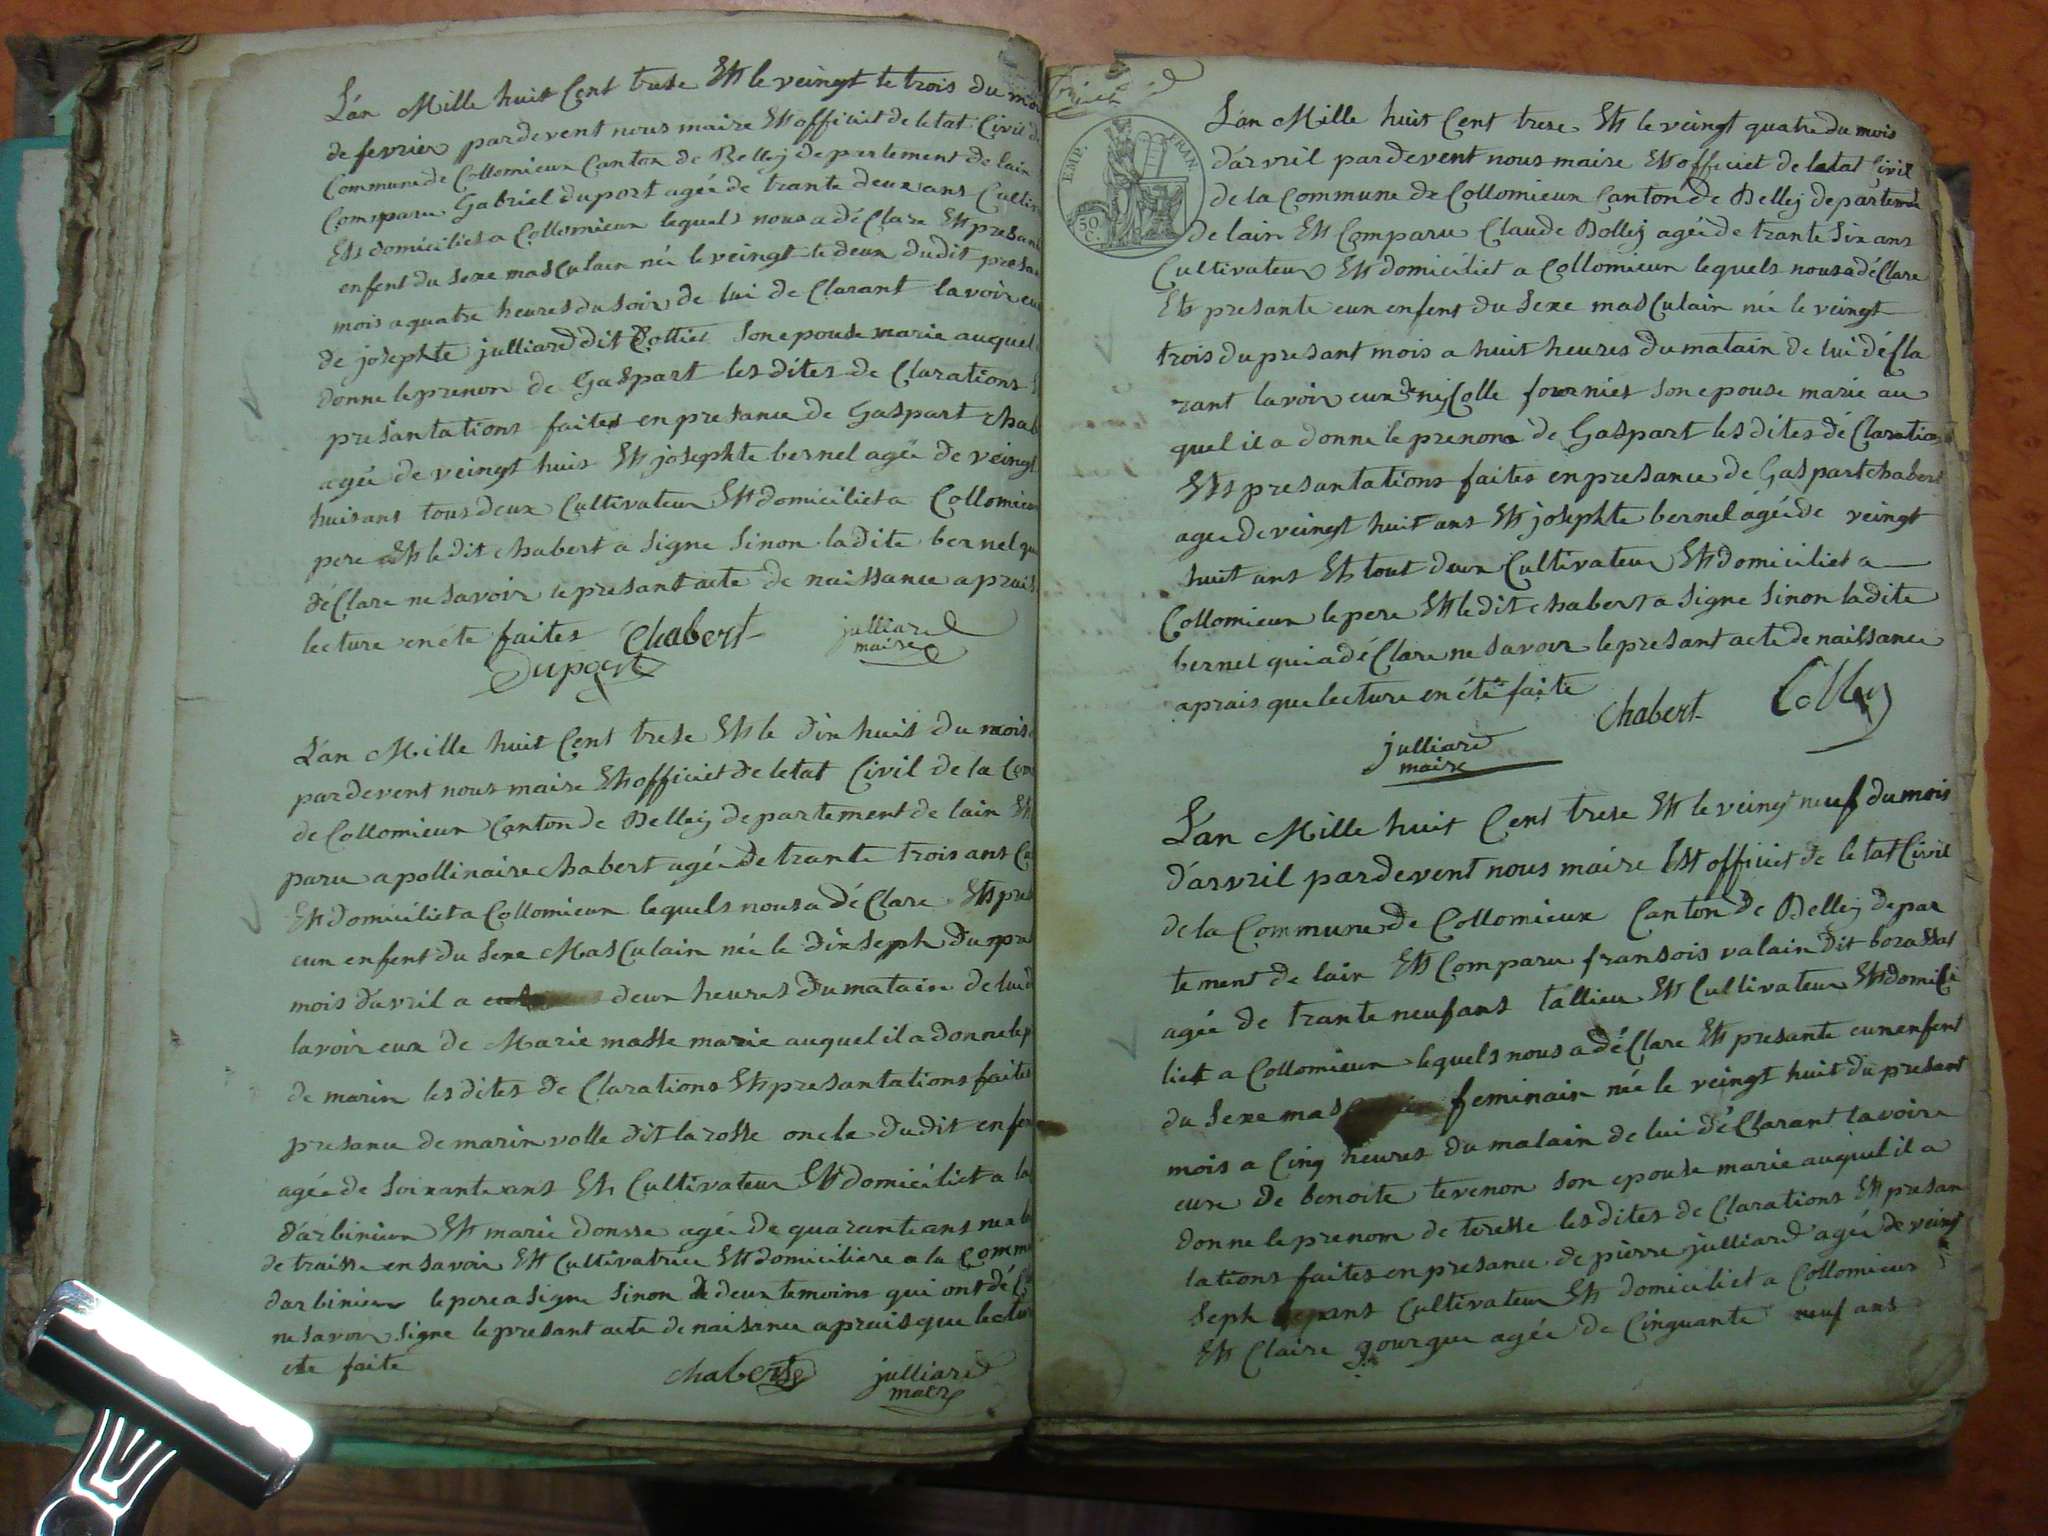 L'an Mille huit Cent trese Et le veingt te trois du
de fevrier pardevent nous maire Et officiet de letat Civil de
Commune de Collomieux Canton de Belleÿ depertement de lain
Comparu Gabriel duport agée de trante deux ans
Et domiciliet a Collomieux lequels nous a déClare Et
enfent du sexe masCulain née le veingt te deux dudit
mois a quatre heures du soir de lui de Clarant lavoir
de josephte julliard dit Son epouse marie auquel
donne le prenon de Gaspart les dites de Clarations
presantations faites en presance de Gaspart
agée de veingt huis Et josephte bernel agée de veingt
huis ans tous deux Cultivateur Et domiciliet a
pere Et le dit chabert a signe sinon ladite bernel
déClare ne savoir le presant acte de naissance
lecture en éte faites Chabert julliard
maire
Duport
L'an Mille huit Cent trese Et le dix huit du mois
pardevent nous maire Et officiet de letat Civil de la
de Collomieux Canton de Belleÿ departement de lain Et
paru apollinaire chabert agée de trante trois ans
Et domiciliet a Collomieux lequels nous a déClare Et
eun enfent du sexe MasCulain née le dix seph du
mois d'avril a deux heures du matain de lui
lavoir eux de Marie masse marie auquel il a donne
de marin les dites de Clarations Et presantations faites
presance de marin volle dit larosse oncle dudit
agée de soixante ans Et Cultivateur Et domiciliet a la
d'arbinieux Et marie donsse agée de quarante ans
de traisse en savoir Et Cultivatrice Et domiciliere a la
darbinieux le pere a signe sinon de deux temoins qui ont
ne savoir signe le presant acte de naisance aprais que
ete faite chabert julliard
maire
EMP. FRAN.
50 C.
L'an Mille huit Cent trese Et le veingt quatre du mois
d'arvril pardevent nous maire Et officiet de letat Civil
de la Commune de Collomieux Canton de Belleÿ
de lain Et Comparu Claude Colleÿ agée de trante six ans
Cultivateur Et domiciliet a Collomieux lequels nous a déClare
Et presante eun enfent du sexe masCulain née le veingt
trois du presant mois a huit heures du matain de lui déCla
rant lavoir eux de niColle fournier son epouse marie au
quel il a donne le prenon de Gaspart les dites dé Claration
Et presantations faites en presance de Gaspart chabert
agee de veingt huit ans Et josephte bernel ágée de veingt
huit ans Et tout deux Cultivateur Et domiciliet a
Collomieux le pere Et le dit chabert a signe sinon ladite
bernel qui a déClare ne savoir le presant acte de naissance
aprais que lecture en éte faite
Chabert Colley
julliard
maire
L'an Mille huit Cent trese Et le veingt neuf du mois
d'arvril pardevent nous maire Est officiet de letat Civil
de la Commune de Collomieux Canton de Belleÿ depar
tement de lain Et Comparu fransois valain dit borassat
agée de trante neuf ans tallieu Et Cultivateur Et domici
liet a Collomieux lequels nous a déClare Et presante eun enfent
du sexe mas feminain née le veingt huit du presant
mois a Cinq heures du matain de lui dé Clarant lavoire
eure de benoite tevenon son epouse marie auquel il a
donne le prenom de teresse les dites de Clarations Et presan
tations faites en presance de pierre julliard agée de veingt
seph ans Cultivateur Et domiciliet a Collomieux
Et Claire gourgue agée de Cinquante neuf ans